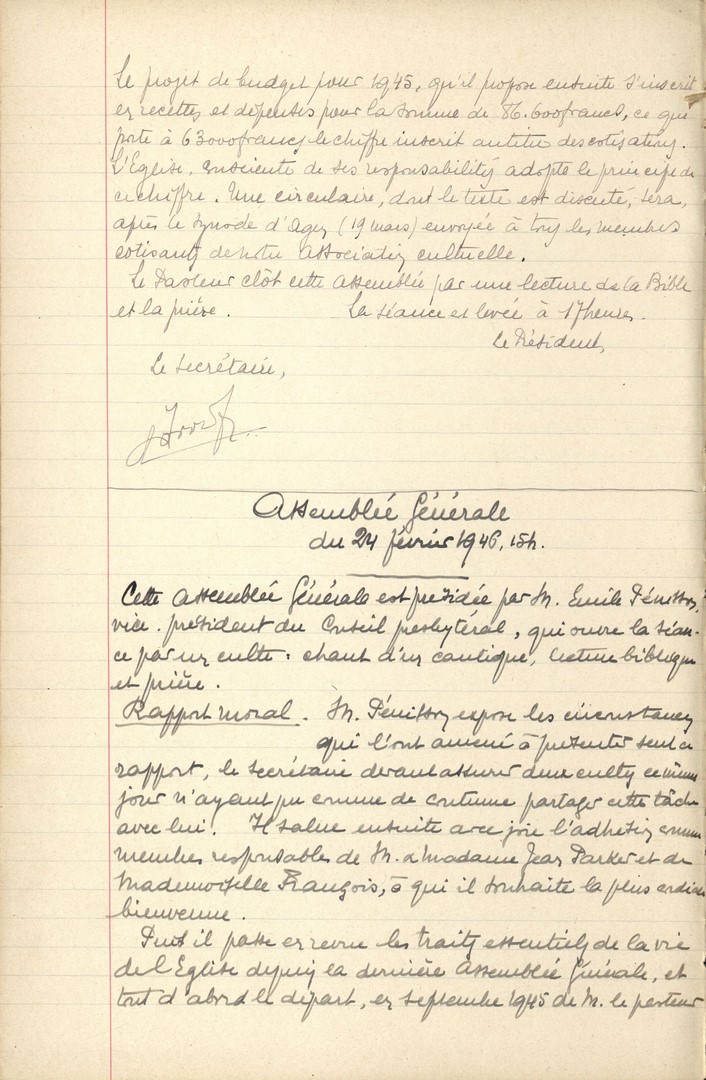 Le projet de budget pour 1945, qu'il propose ensuite s'inscrit
en recettes et dépenses pour la somme de 86.600francs, ce qui
porte à 63000francs le chiffre inscrit au titre des cotisations.
L'Eglise, consciente de ses responsabilités adopte le principe de
ce chiffre. Une circulaire, dont le texte est discuté, sera,
après le synode d'Agen (19 mars) envoyée à tous les membres
cotisants de notre association cultuelle.
Le Pasteur clôt cette assemblée par une lecture de la Bible
et la prière. La séance est levée à 17heures.
Le Président,
Le secrétaire,
Assemblée Générale
du 24 février 1946, 15h.
Cette Assemblée Générale est présidée par M. Emile Pénisson,
vice-président du Conseil presbytéral, qui ouvre la séan-
ce par un culte : chant d'un cantique, lecture biblique
et prière.
Rapport moral. M. Pénisson expose les circonstances
qui l'ont amené à présenter seul ce
rapport, le secrétaire devant assurer deux cultes ce même
jour n'ayant pu comme de coutume partager cette tâche
avec lui. Il salue ensuite avec joie l'adhésion comme
membres responsables de M. et Madame Jean Parker et de
Mademoiselle François, à qui il souhaite la plus cordiale
bienvenue.
Puis il passe en revue les traits essentiels de la vie
de l'Eglise depuis la dernière Assemblée Générale, et
tout d'abord le départ, en septembre 1945 de M. le pasteur